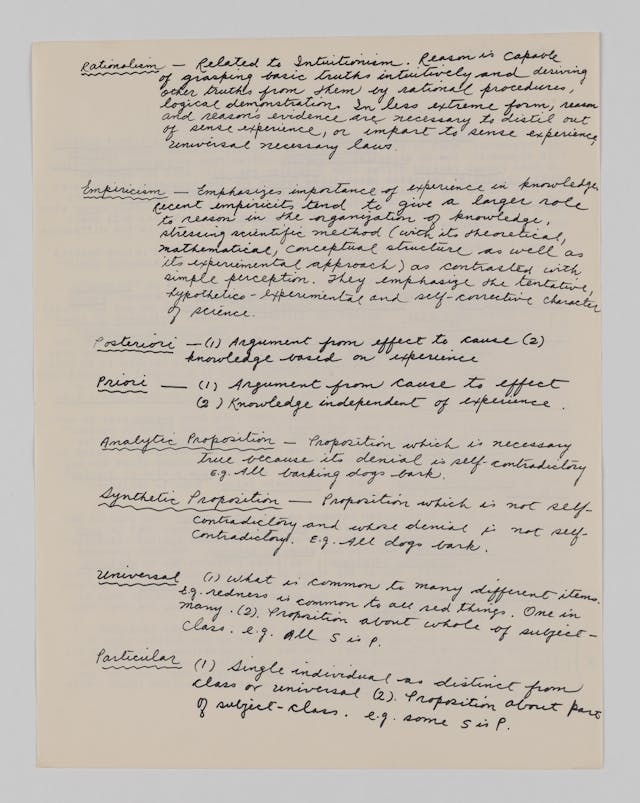 Rationalism — Related to Intuitionism. Reason is capable
of grasping basic truths intuitively and deriving
other truths from them by rational procedures,
logical demonstration. In less extreme form, reason
and reason's evidence are necessary to distil out
of sense experience, or impart to sense experience,
universal necessary laws.
Empiricism — Emphasizes importance of experience in knowledge.
Recent empiricits tend to give a larger role
to reason in the organization of knowledge,
stressing scientific method (with its theoretical,
mathematical, conceptual structure as well as
its experimental approach) as contrasted with
simple perception. They emphasize the tentative,
hypothetico-experimental and self-corrective character
of science.
Posteriori — (1) Argument from effect to cause (2)
knowledge based on experience
Priori — (1) Argument from cause to effect
(2) Knowledge independent of experience.
Analytic Proposition — Proposition which is necessary
true because its denial is self-contradictory
E.g. All barking dogs bark.
Synthetic Proposition — Proposition which is not self-
contradictory and whose denial is not self-
contradictory. E.g. All dogs bark.
Universal (1) What is common to many different items.
E.g. redness is common to all red things. One in
many. (2). Proposition about whole of subject-
class. e.g. All S is P.
Particular (1) Single individual as distinct from
class or universal (2). Proposition about part
of subject-class. e.g. some S is P.